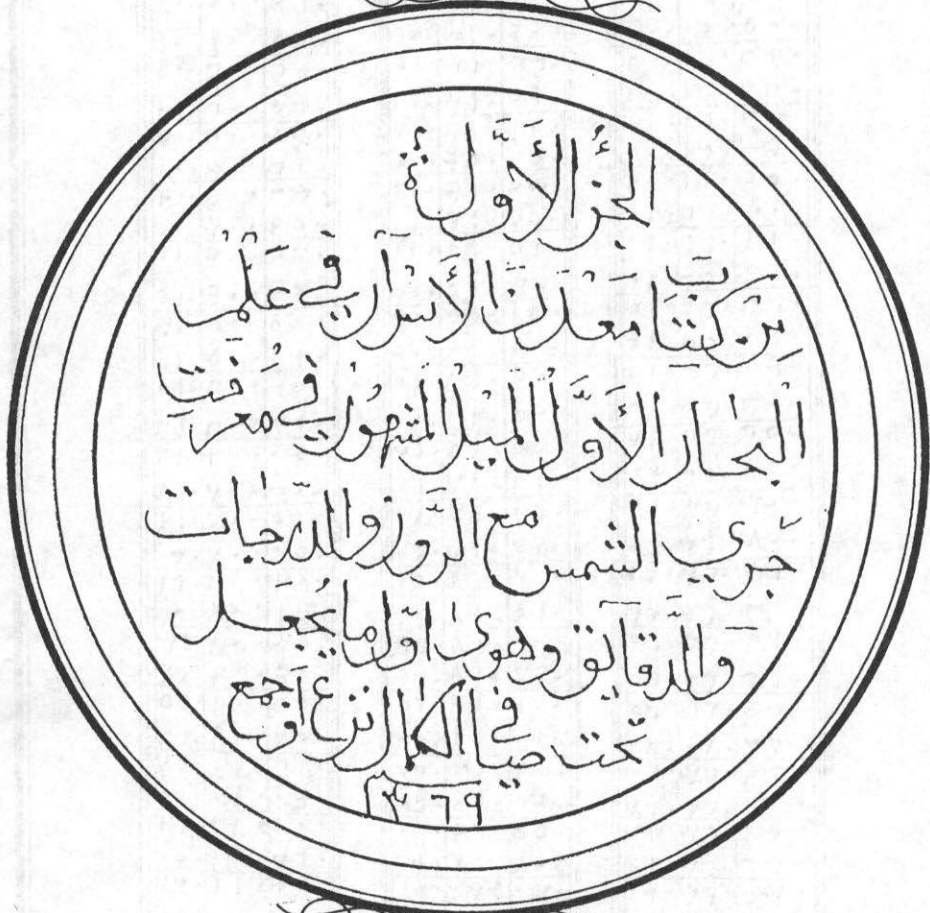 الجزُ الأَوَّل
مِن كِتَابَ مَعْدَن الأَسْرَار في عِلْمُ
الْبِحَار الأَوَّل الميل المشهور في معرفت
جَري الشمس مع الزور والدرجات
والدقايق وهوى اوّل ما يُجعل
تحت في
١٣٦٩